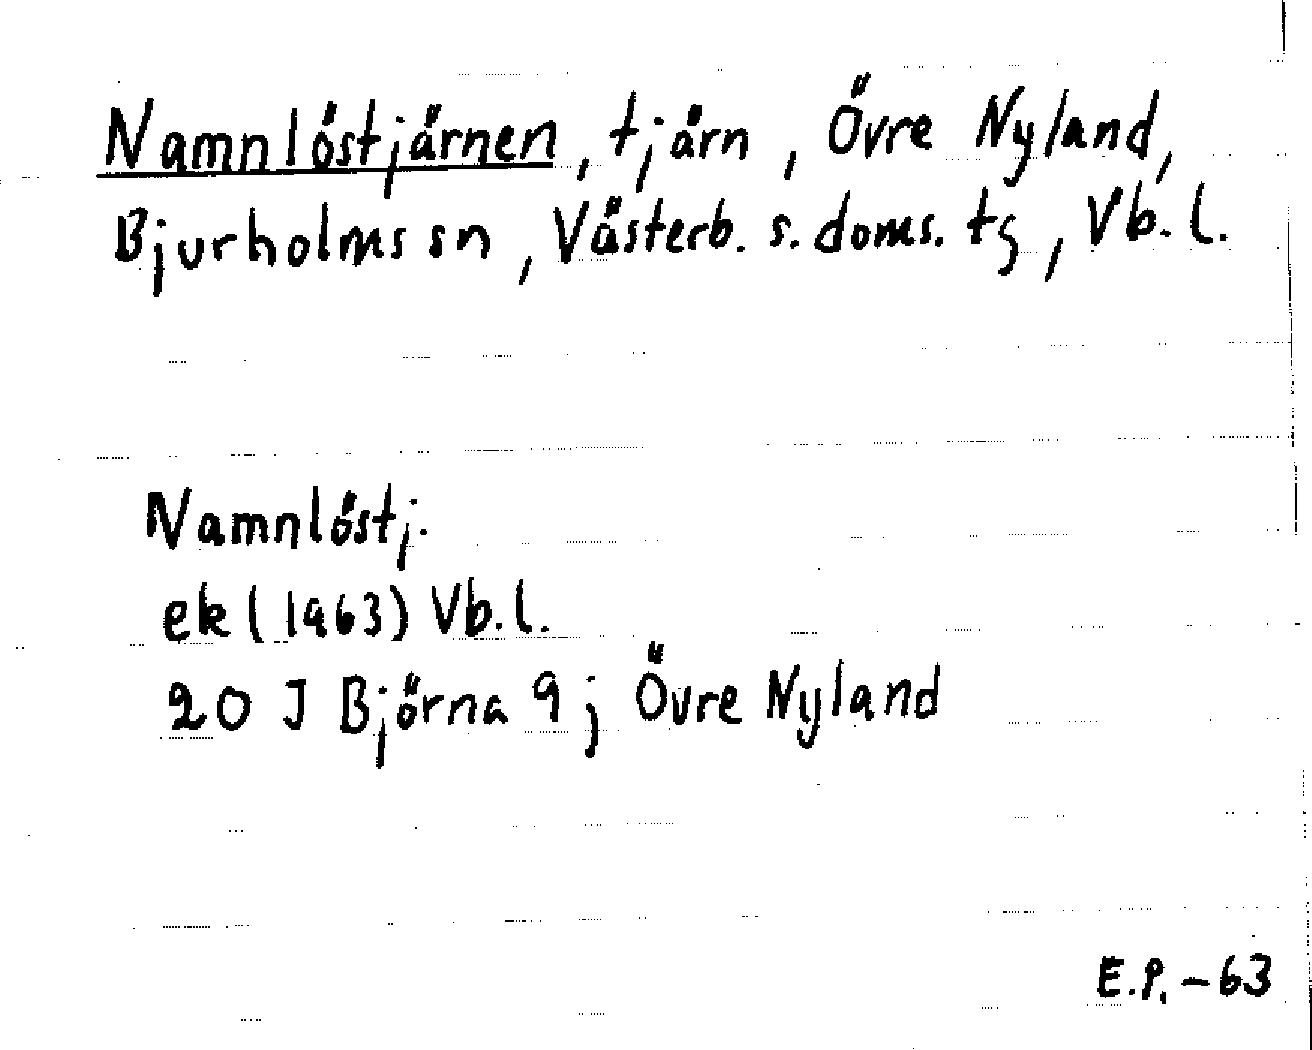 Namnlöstjärnen, tjärn, Övre Nyland,
Bjurholms sn, Västerb. s. doms. tg, Vb. l.
Namnlöstj.
ek (1963) Vb. l.
20 J Björna 9 j Övre Nyland
E.P. - 63